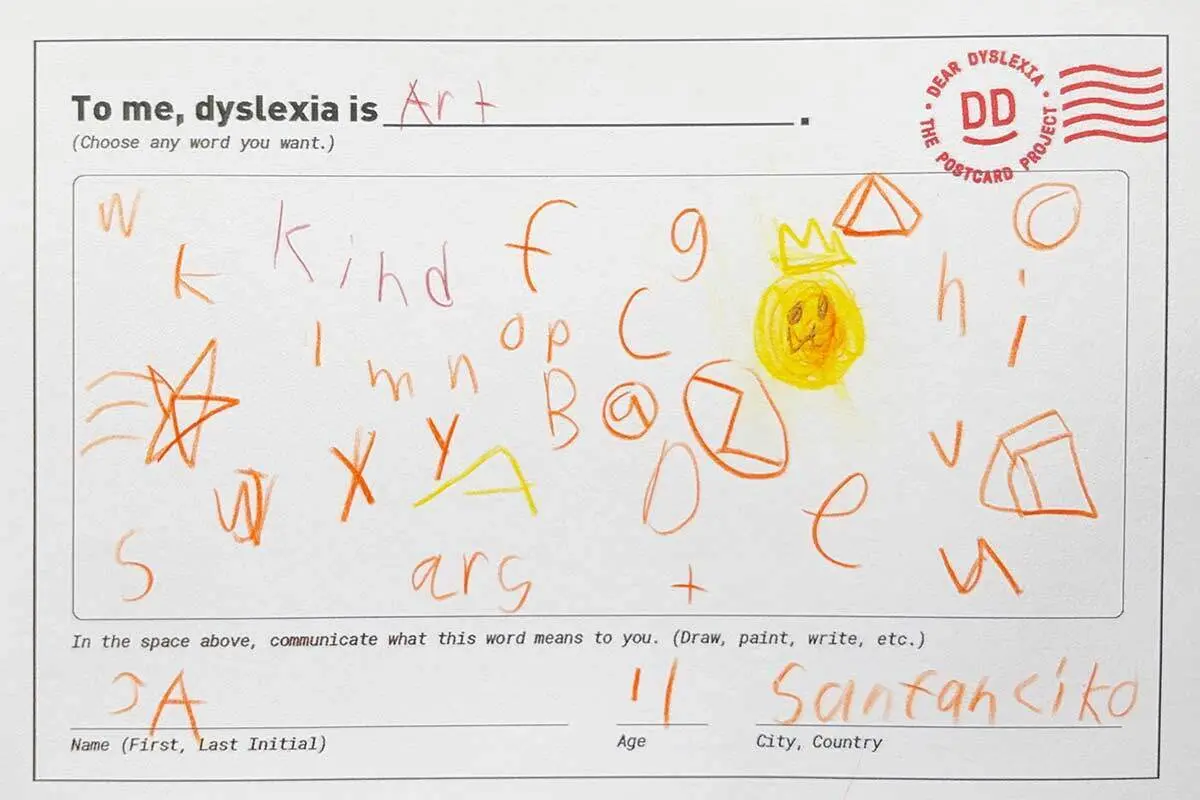 To me, dyslexia is Art.
(Choose any word you want.)
• DEAR DYSLEXIA • THE POSTCARD PROJECT
DD
w k kind f g h i
l m n o p c j
B a Z
x y A D v
w e
s a r s t u
In the space above, communicate what this word means to you. (Draw, paint, write, etc.)
JA 11 Sanfanciko
Name (First, Last Initial) Age City, Country